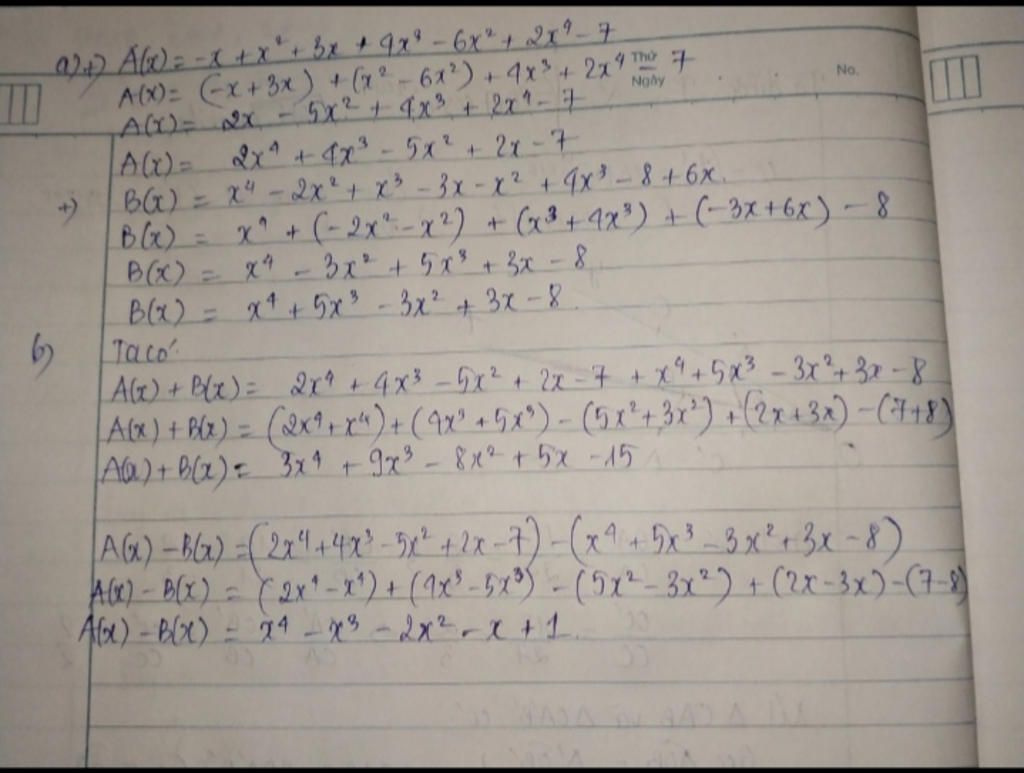 a) +) A(x) = -x + x² + 3x + 4x³ - 6x² + 2x⁴ - 7
A(x) = (-x + 3x) + (x² - 6x²) + 4x³ + 2x⁴ - 7
Thứ
Ngày
No.
A(x) = 2x - 5x² + 4x³ + 2x⁴ - 7
A(x) = 2x⁴ + 4x³ - 5x² + 2x - 7
+) B(x) = x⁴ - 2x² + x³ - 3x - x² + 4x³ - 8 + 6x.
B(x) = x⁴ + (-2x² - x²) + (x³ + 4x³) + (-3x + 6x) - 8
B(x) = x⁴ - 3x² + 5x³ + 3x - 8
B(x) = x⁴ + 5x³ - 3x² + 3x - 8.
b) Ta có:
A(x) + B(x) = 2x⁴ + 4x³ - 5x² + 2x - 7 + x⁴ + 5x³ - 3x² + 3x - 8
A(x) + B(x) = (2x⁴ + x⁴) + (4x³ + 5x³) - (5x² + 3x²) + (2x + 3x) - (7 + 8)
A(x) + B(x) = 3x⁴ + 9x³ - 8x² + 5x - 15
A(x) - B(x) = (2x⁴ + 4x³ - 5x² + 2x - 7) - (x⁴ + 5x³ - 3x² + 3x - 8)
A(x) - B(x) = (2x⁴ - x⁴) + (4x³ - 5x³) - (5x² - 3x²) + (2x - 3x) - (7 - 8)
A(x) - B(x) = x⁴ - x³ - 2x² - x + 1.